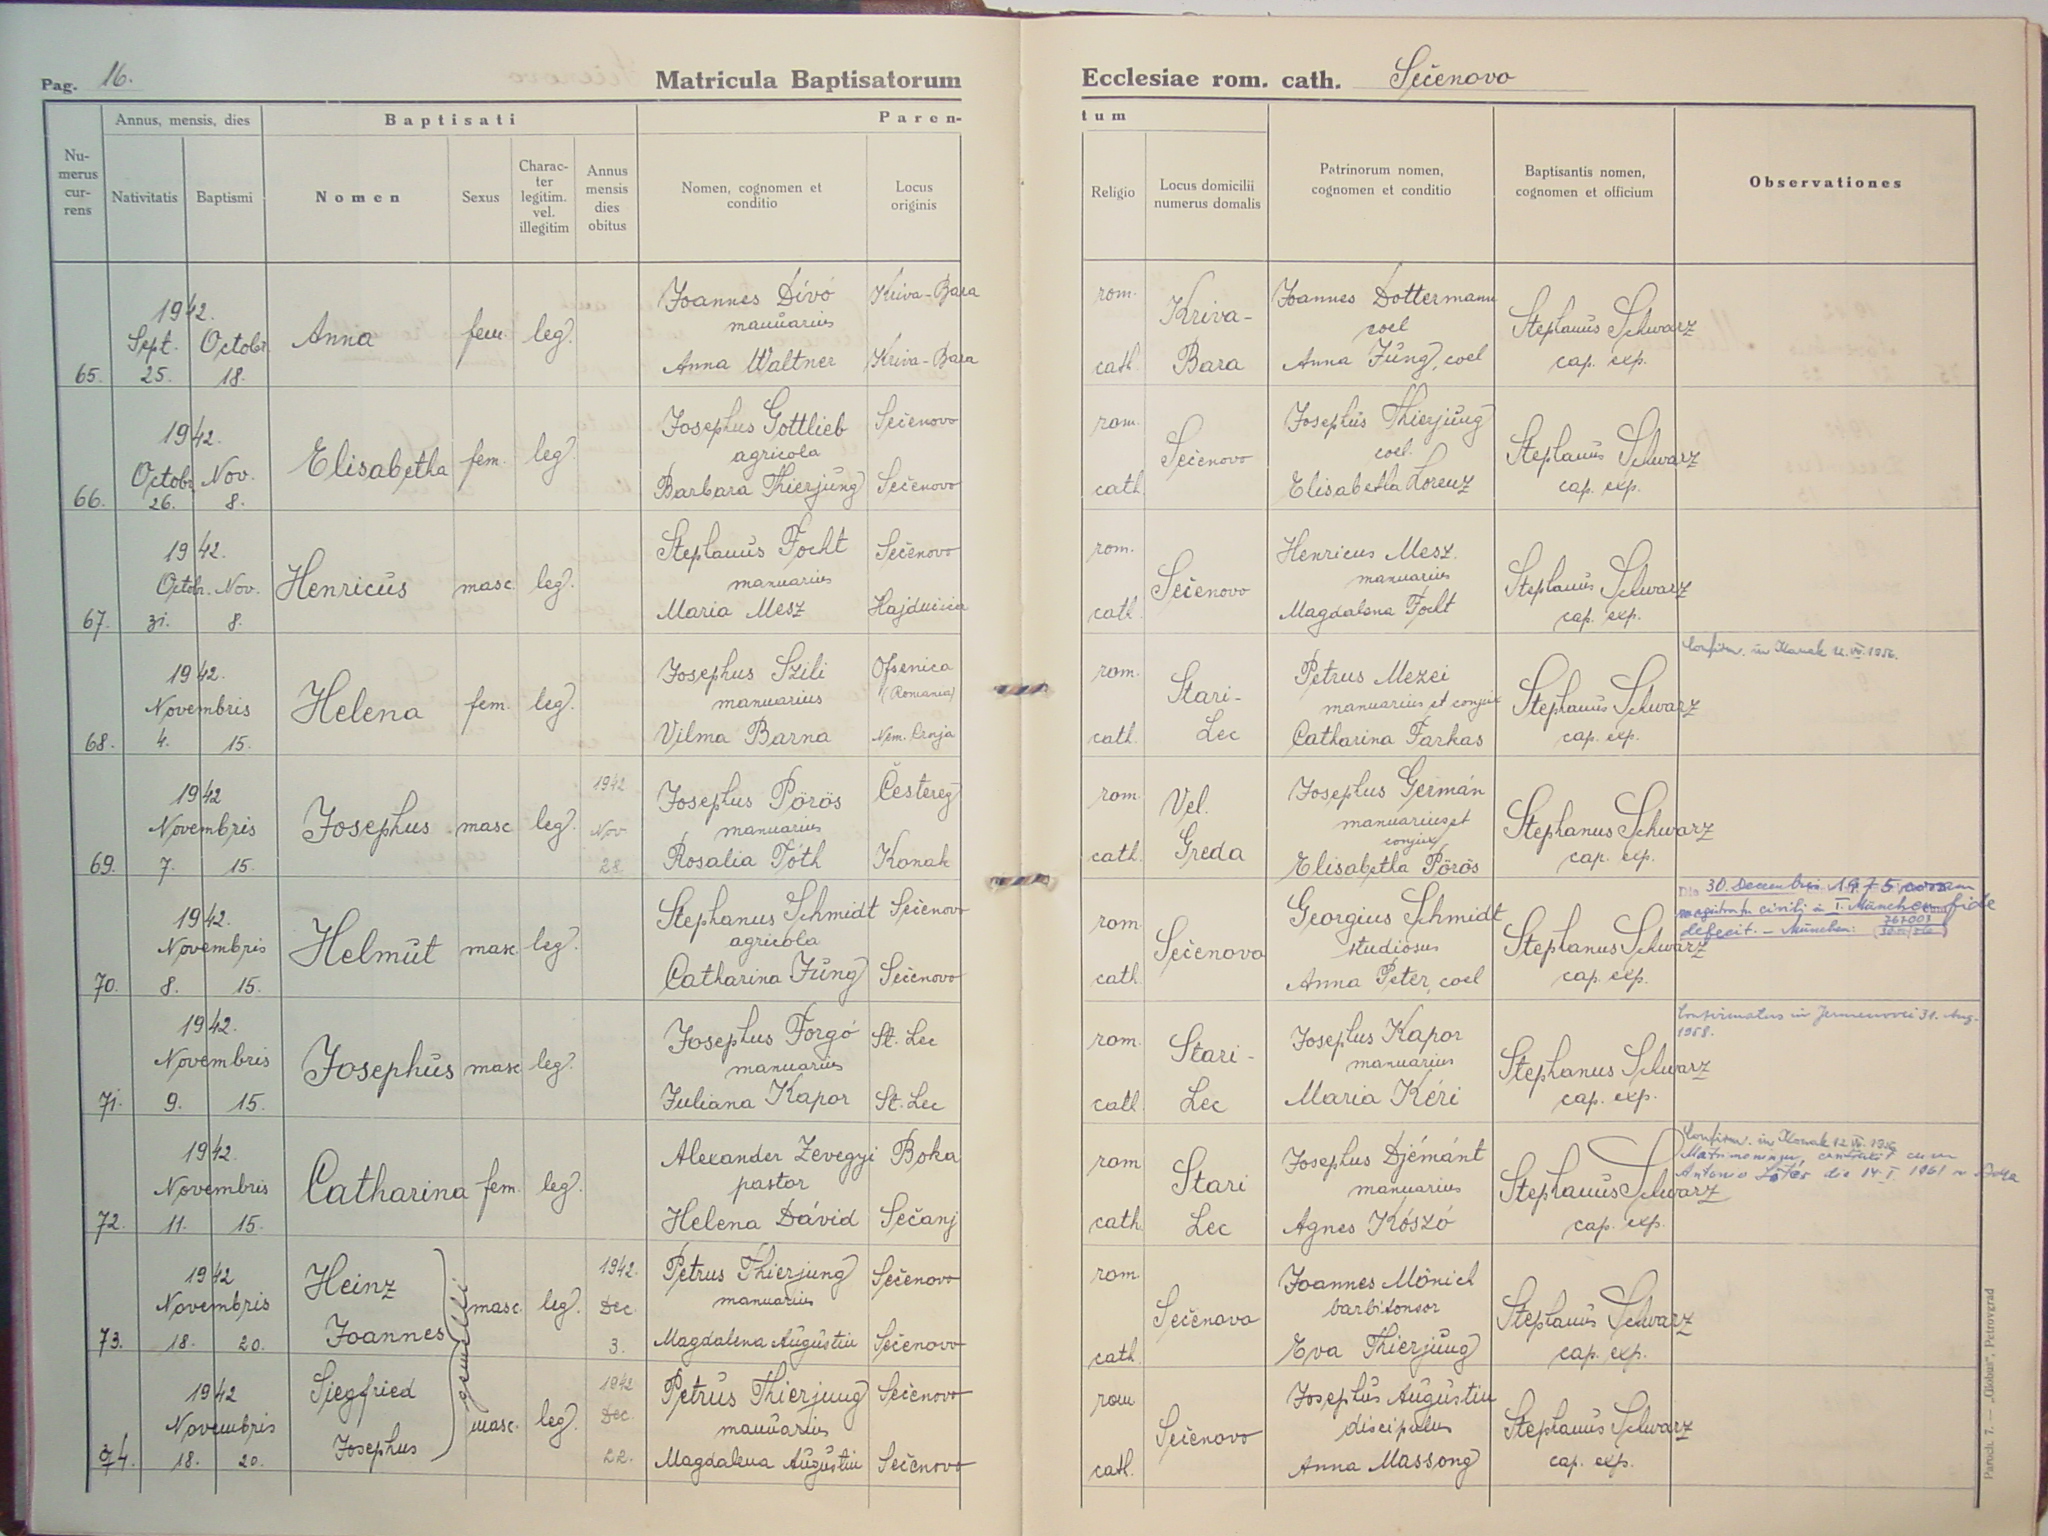 Pag. 16.
Matricula Baptisatorum
Ecclesiae rom. cath. Sečenovo
Annus, mensis, dies
Baptisati
Paren-
tum
Nu-
merus
cur-
rens
Nativitatis
Baptismi
Nomen
Sexus
Charac-
ter
legitim.
vel.
illegitim
Annus
mensis
dies
obitus
Nomen, cognomen et
conditio
Locus
originis
Religio
Locus domicilii
numerus domalis
Patrinorum nomen,
cognomen et conditio
Baptisantis nomen,
cognomen et officium
Observationes
65.
1942.
Sept. Octobr.
25. 18.
Anna
fem.
leg.
Joannes Divó
manuarius
Anna Waltner
Kriva-Bara
Kriva-Bara
rom.
cath.
Kriva-
Bara
Joannes Dottermann
coel
Anna Jung, coel
Stephanus Schwarz
cap. exp.
66.
1942.
Octobr. Nov.
26. 8.
Elisabetha
fem.
leg.
Josephus Gottlieb
agricola
Barbara Thierjung
Sečenovo
Sečenovo
rom.
cath.
Sečenovo
Josephus Thierjung
coel.
Elisabetha Lorenz
Stephanus Schwarz
cap. exp.
67.
1942.
Octobr. Nov.
31. 8.
Henricus
masc.
leg.
Stephanus Focht
manuarius
Maria Mesz
Sečenovo
Hajdučica
rom.
cath.
Sečenovo
Henricus Mesz.
manuarius
Magdalena Focht
Stephanus Schwarz
cap. exp.
68.
1942.
Novembris
4. 15.
Helena
fem.
leg.
Josephus Szili
manuarius
Vilma Barna
Ofsenica
(Romania)
Nem. Crnja
rom.
cath.
Stari-
Lec
Petrus Mezei
manuarius et conjux
Catharina Farkas
Stephanus Schwarz
cap. exp.
Confirm. in Konak 12. VII. 1956.
69.
1942
Novembris
7. 15.
Josephus
masc.
leg.
1942
Nov.
28.
Josephus Pörös
manuarius
Rosalia Tóth
Čestereg
Konak
rom.
cath.
Vel.
Greda
Josephus Germán
manuarius et
conjux
Elisabetha Pörös
Stephanus Schwarz
cap. exp.
70.
1942.
Novembris
8. 15.
Helmut
masc.
leg.
Stephanus Schmidt
agricola
Catharina Jung
Sečenovo
Sečenovo
rom.
cath.
Sečenovo
Georgius Schmidt
studiosus
Anna Peter, coel
Stephanus Schwarz
cap. exp.
Die 30. Decembris 1975 coram
magistratu civili in München fide
defecit. – München:
71.
1942.
Novembris
9. 15.
Josephus
masc.
leg.
Josephus Forgó
manuarius
Juliana Kapor
St. Lec
St. Lec
rom.
cath.
Stari-
Lec
Josephus Kapor
manuarius
Maria Kéri
Stephanus Schwarz
cap. exp.
Confirmatus in Jermenovci 31. Aug.
1958.
72.
1942.
Novembris
11. 15.
Catharina
fem.
leg.
Alexander Zevegyi
pastor
Helena Dávid
Boka
Sečanj
rom
cath.
Stari
Lec
Josephus Djémánt
manuarius
Agnes Kószó
Stephanus Schwarz
cap. exp.
Confirm. in Konak 12. VII. 1956
Matrimonium contraxit cum
Antonio die 14. I. 1961 in Boka
73.
1942
Novembris
18. 20.
Heinz
Joannes
gemelli
masc.
leg.
1942.
Dec.
3.
Petrus Thierjung
manuarius
Magdalena Augustin
Sečenovo
Sečenovo
rom
cath.
Sečenovo
Joannes Mönich
barbitonsor
Eva Thierjung
Stephanus Schwarz
cap. exp.
74.
1942
Novembris
18. 20.
Siegfried
Josephus
masc.
leg.
1942
Dec.
22.
Petrus Thierjung
manuarius
Magdalena Augustin
Sečenovo
Sečenovo
rom
cath.
Sečenovo
Josephus Augustin
discipulus
Anna Massong
Stephanus Schwarz
cap. exp.
Paroch. 7. — „Globus", Petrovgrad